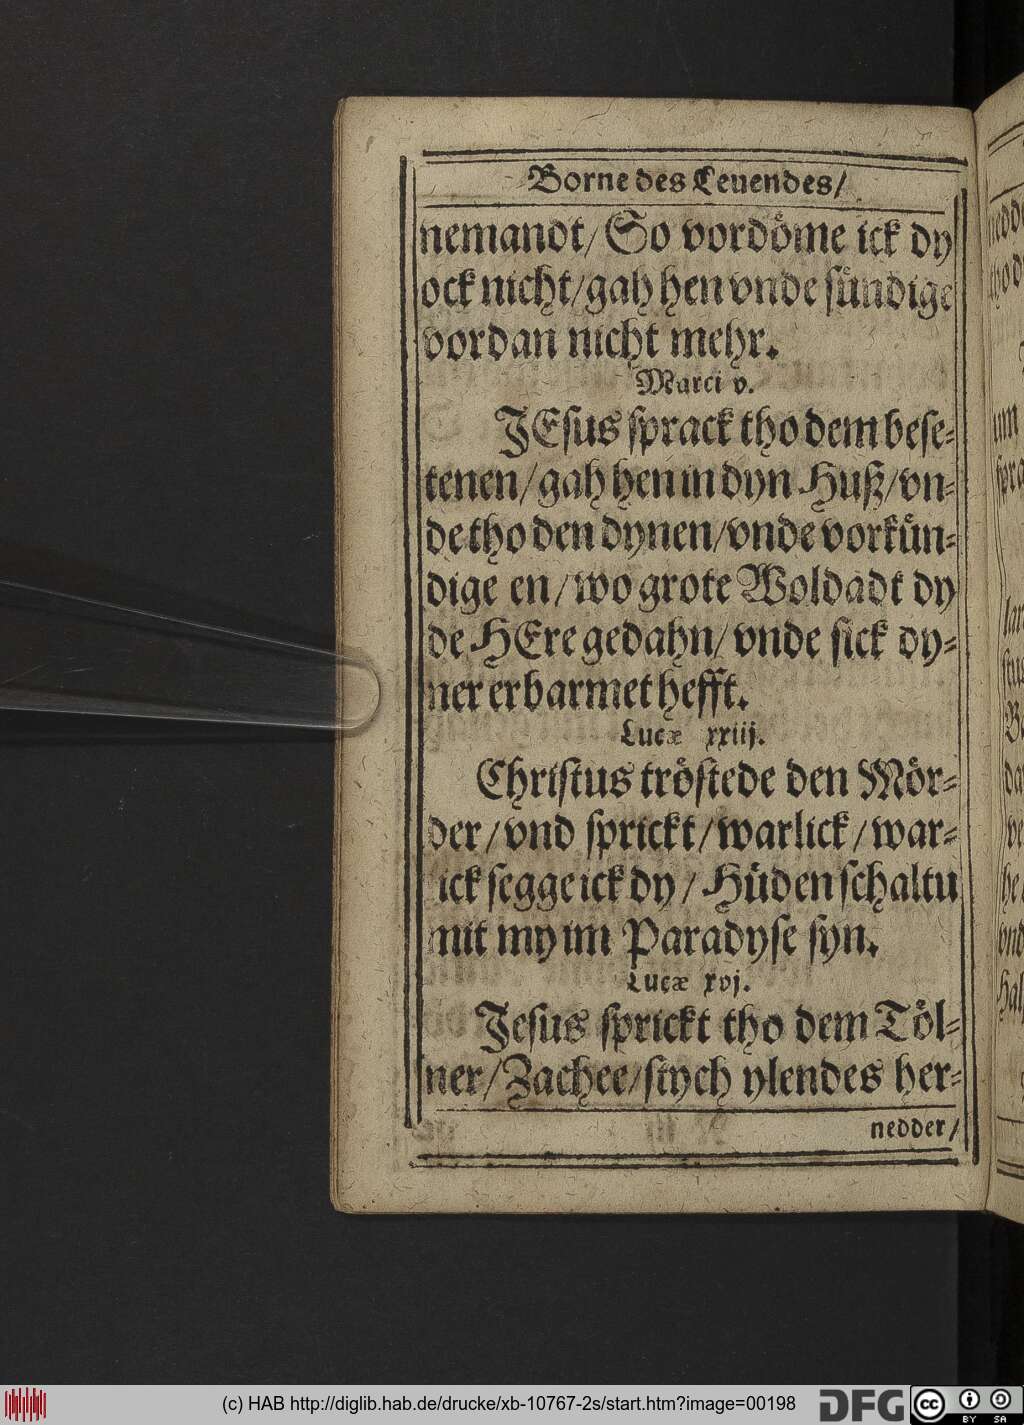 Borne des Leuendes/
nemandt/ So vordöme ick dy
ock nicht/ gah hen vnde sündige
vordan nicht mehr.
Marci v.
JEsus sprack tho dem bese-
tenen/ gah hen in dyn Huß/ vn-
de tho den dynen/ vnde vorkün-
dige en/ wo grote Woldadt dy
de HEre gedahn/ vnde sick dy-
ner erbarmet hefft.
Lucæ xxiij.
Christus tröstede den Mör-
der/ vnd sprickt/ warlick/ war-
ick segge ick dy/ Hüden schaltu
mit my im Paradyse syn.
Lucæ xvj.
Jesus sprickt tho dem Töl-
ner/ Zachee/ stych ylendes her-
nedder/
(c) HAB http://diglib.hab.de/drucke/xb-10767-2s/start.htm?image=00198
DFG
cc BY SA